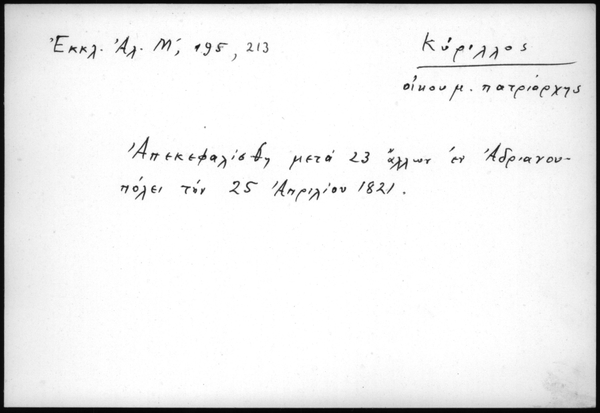 Ἐκκλ. Ἀλ. Μ´, 195, 213
Κύριλλος
οἰκουμ. πατριάρχης
Ἀπεκεφαλίσθη μετά 23 ἄλλων ἐν Ἀδριανου-
πόλει τήν 25 Ἀπριλίου 1821.